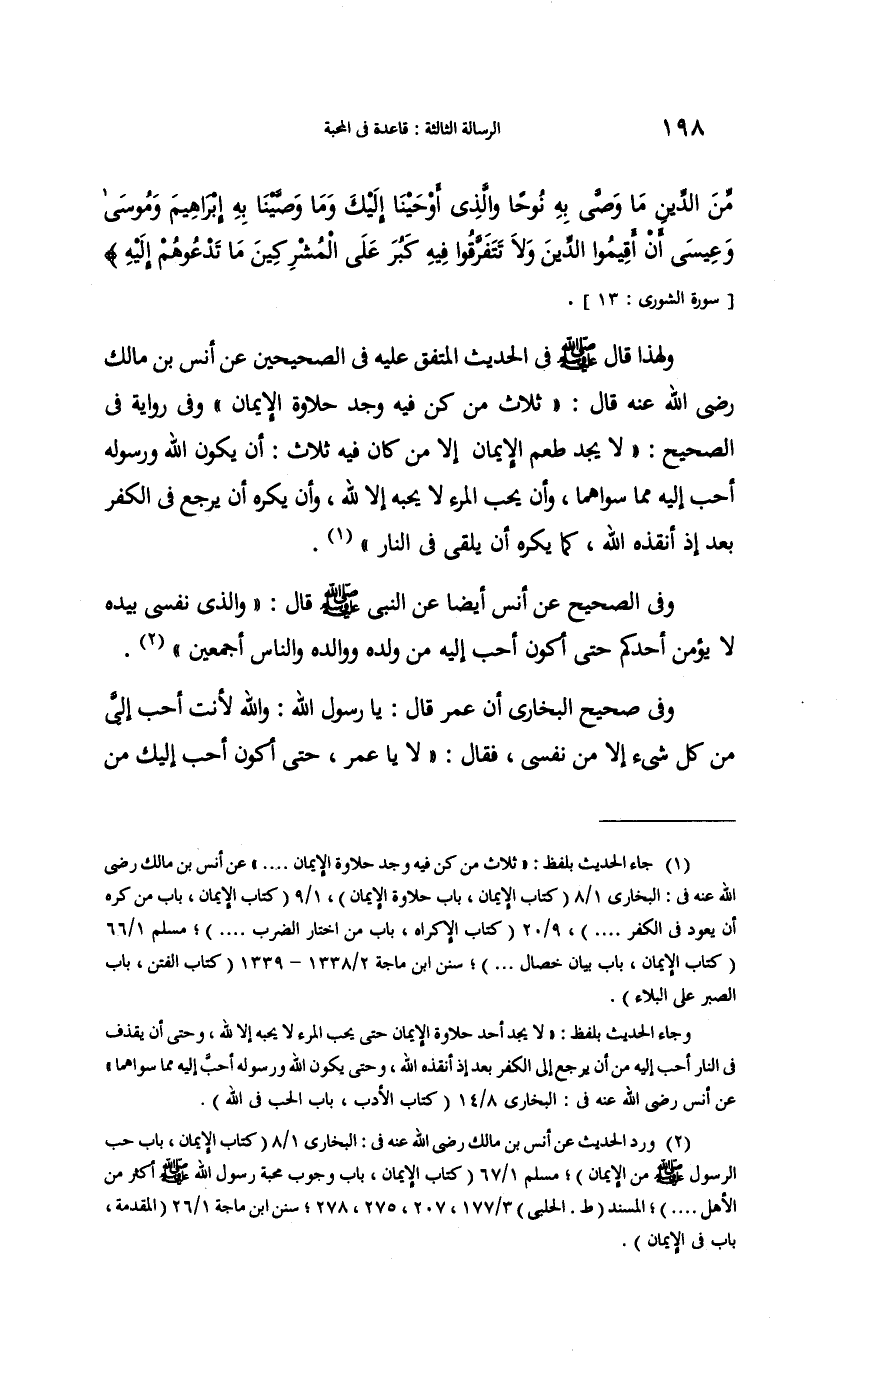 ١٩٨ الرسالة الثالثة : قاعدة فى المحبة
مِّنَ الدِّينِ مَا وَصَّى بِهِ نُوحًا والَّذِى أَوْحَيْنَا إِلَيْكَ وَمَا وَصَّيْنَا بِهِ إِبْرَاهِيمَ وَمُوسَىٰ
وَعِيسَى أَنْ أَقِيمُوا الدِّينَ وَلاَ تَتَفَرَّقُوا فِيهِ كَبُرَ عَلَى الْمُشْرِكِينَ مَا تَدْعُوهُمْ إِلَيْهِ ﴾
[ سورة الشورى : ١٣ ] .
ولهذا قال ﷺ فى الحديث المتفق عليه فى الصحيحين عن أنس بن مالك
رضى الله عنه قال : « ثلاث من كن فيه وجد حلاوة الإيمان » وفى رواية فى
الصحيح : « لا يجد طعم الإيمان إلا من كان فيه ثلاث : أن يكون الله ورسوله
أحب إليه مما سواهما ، وأن يحب المرء لا يحبه إلا لله ، وأن يكره أن يرجع فى الكفر
بعد إذ أنقذه الله ، كما يكره أن يلقى فى النار » (١) .
وفى الصحيح عن أنس أيضا عن النبى ﷺ قال : « والذى نفسى بيده
لا يؤمن أحدكم حتى أكون أحب إليه من ولده ووالده والناس أجمعين » (٢) .
وفى صحيح البخارى أن عمر قال : يا رسول الله : والله لأنت أحب إلىَّ
من كل شىء إلا من نفسى ، فقال : « لا يا عمر ، حتى أكون أحب إليك من
(١) جاء الحديث بلفظ : « ثلاث من كن فيه وجد حلاوة الإيمان .... » عن أنس بن مالك رضى
الله عنه فى : البخارى ٨/١ ( كتاب الإيمان ، باب حلاوة الإيمان ) ، ٩/١ ( كتاب الإيمان ، باب من كره
أن يعود فى الكفر .... ) ، ٢٠/٩ ( كتاب الإكراه ، باب من اختار الضرب .... ) ؛ مسلم ٦٦/١
( كتاب الإيمان ، باب بيان خصال ... ) ؛ سنن ابن ماجة ١٣٣٨/٢ – ١٣٣٩ ( كتاب الفتن ، باب
الصبر على البلاء ) .
وجاء الحديث بلفظ : « لا يجد أحد حلاوة الإيمان حتى يحب المرء لا يحبه إلا لله ، وحتى أن يقذف
فى النار أحب إليه من أن يرجع إلى الكفر بعد إذ أنقذه الله ، وحتى يكون الله ورسوله أحبَّ إليه مما سواهما »
عن أنس رضى الله عنه فى : البخارى ١٤/٨ ( كتاب الأدب ، باب الحب فى الله ) .
(٢) ورد الحديث عن أنس بن مالك رضى الله عنه فى : البخارى ٨/١ ( كتاب الإيمان ، باب حب
الرسول ﷺ من الإيمان ) ؛ مسلم ٦٧/١ ( كتاب الإيمان ، باب وجوب محبة رسول الله ﷺ أكثر من
الأهل .... ) ؛ المسند ( ط . الحلبى ) ١٧٧/٣ ، ٢٠٧ ، ٢٧٥ ، ٢٧٨ ؛ سنن ابن ماجة ٢٦/١ ( المقدمة ،
باب فى الإيمان ) .